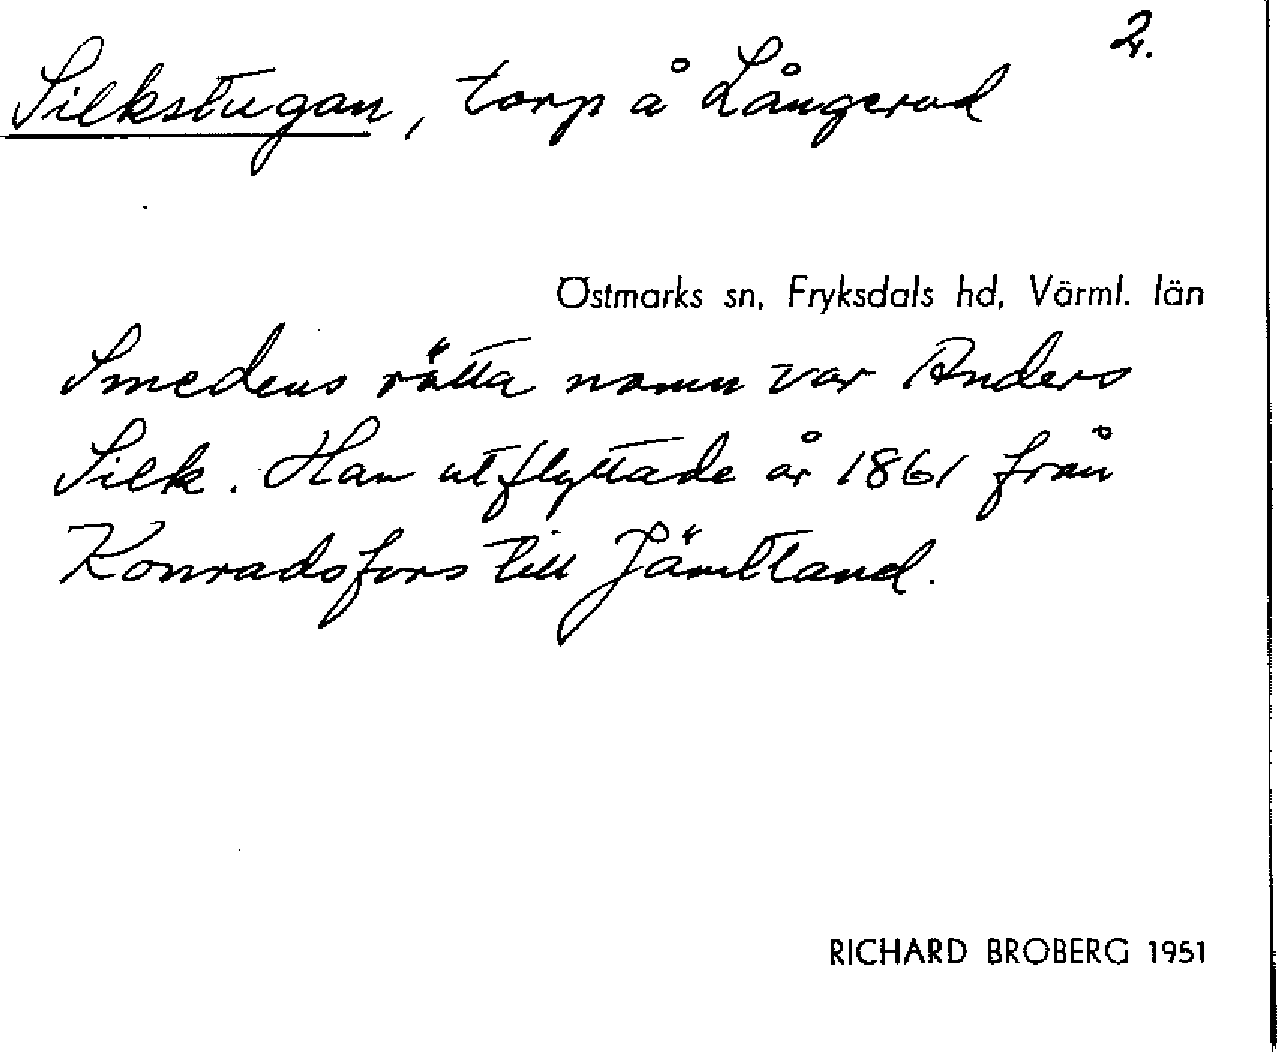 2.
Silkstugan, torp å Långerud
Östmarks sn, Fryksdals hd, Värml. län
Smedens rätta namn var Anders
Silk. Han utflyttade år 1861 från
Konradsfors till Jämtland.
RICHARD BROBERG 1951